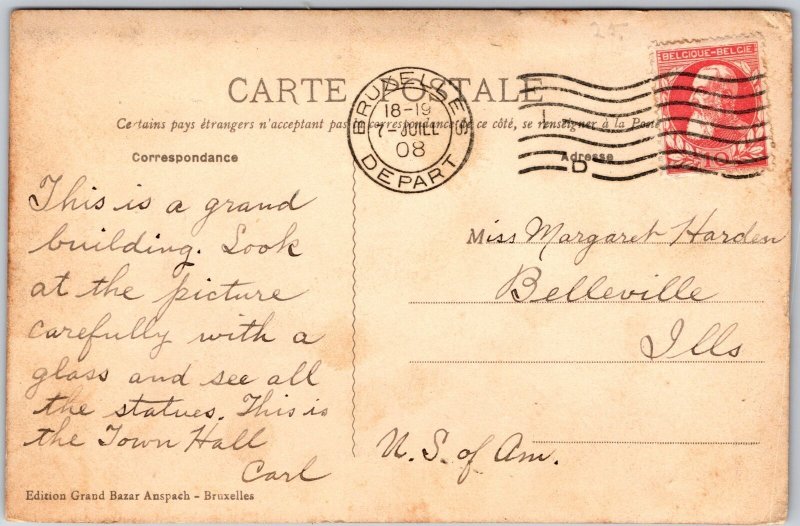 25.
BELGIQUE-BELGIE
10
CARTE POSTALE
BRUXELLES
18-19
7-JUILL
08
DEPART
D
Certains pays étrangers n'acceptant pas la correspondance de ce côté, se renseigner à la Poste
Correspondance
Adresse
This is a grand
building. Look
at the picture
carefully with a
glass and see all
the statues. This is
the Town Hall
Carl
Miss Margaret Harden
Belleville
Ills
U.S. of Am.
Edition Grand Bazar Anspach - Bruxelles